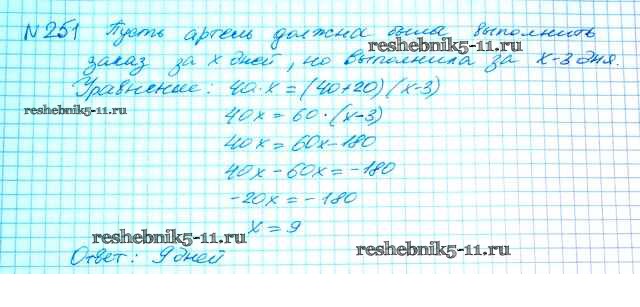 №251 Пусть артель должна была выполнить
reshebnik5-11.ru
заказ за x дней, но выполнила за x-3 дня.
Уравнение: 40·x=(40+20)(x-3)
reshebnik5-11.ru
40x = 60·(x-3)
40x = 60x-180
40x-60x=-180
-20x=-180
x=9
reshebnik5-11.ru
reshebnik5-11.ru
Ответ: 9 дней